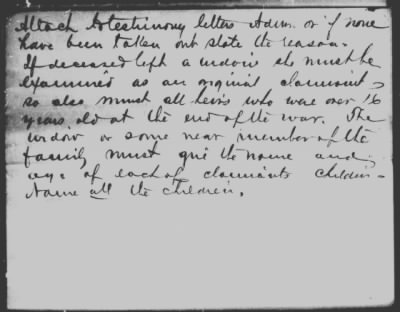 Attach to testimony letters Adm. or if none
have been taken out state the reason.
If deceased left a widow she must be
examined as an original claimant,
so also must all heirs who were over 16
years old at the end of the war. The
widow or some near member of the
family must give the name and
age of each of claimants children -
Name all the children.